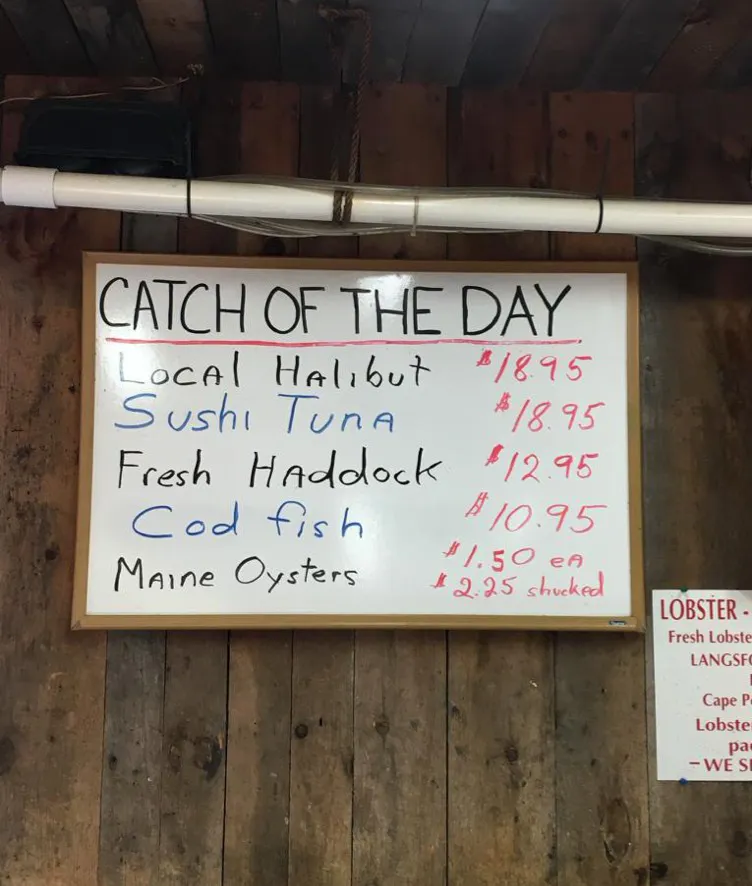 CATCH OF THE DAY
Local Halibut $18.95
Sushi Tuna $18.95
Fresh Haddock $12.95
Cod fish $10.95
Maine Oysters $1.50 ea
$2.25 shucked
LOBSTER -
Fresh
Cape
- WE